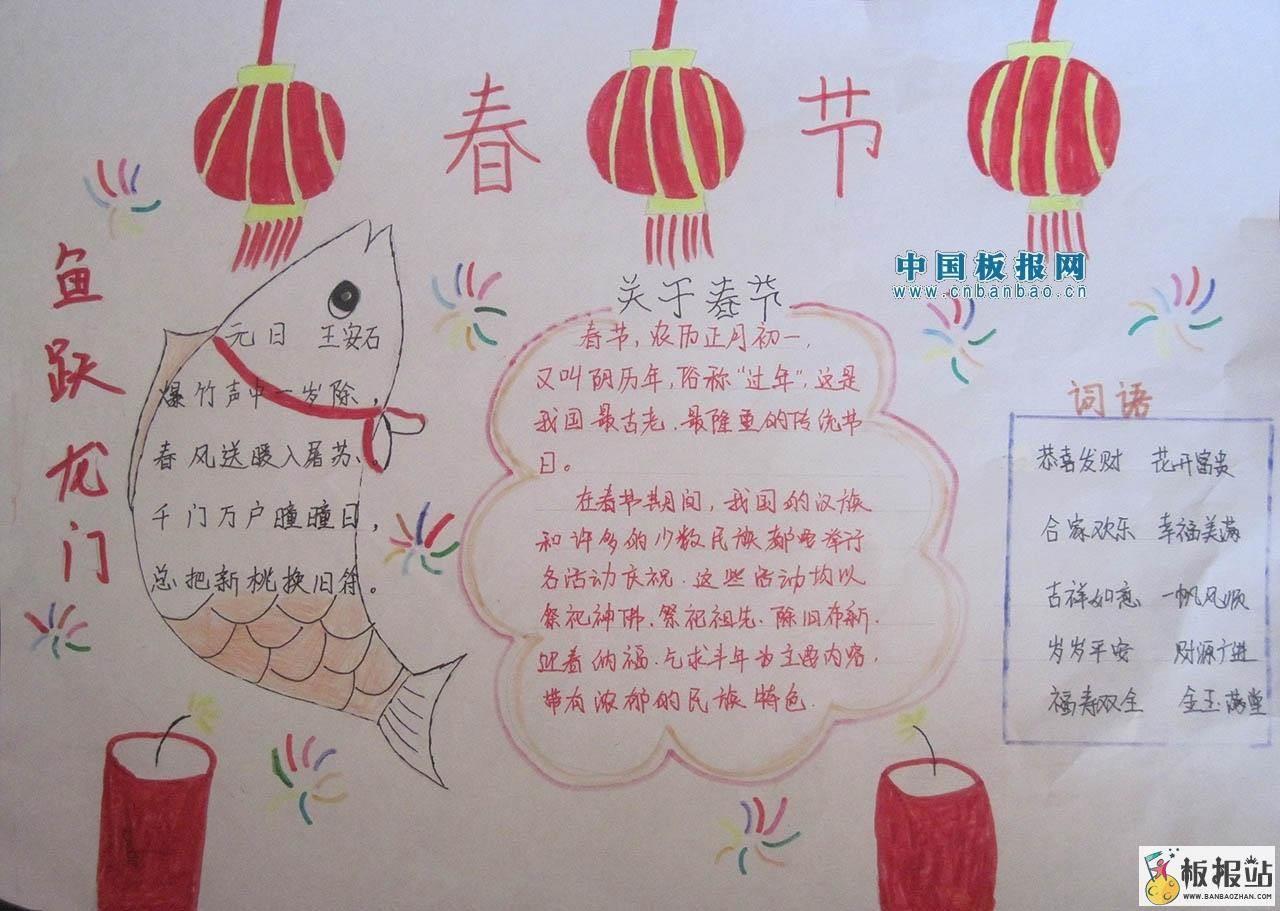 春节
中国板报网
www.cnbanbao.cn
鱼跃龙门
元日 王安石
爆竹声中一岁除，
春风送暖入屠苏。
千门万户曈曈日，
总把新桃换旧符。
关于春节
春节，农历正月初一，
又叫阴历年，俗称“过年”，这是
我国最古老、最隆重的传统节
日。
在春节期间，我国的汉族
和许多的少数民族都要举行
各活动庆祝.这些活动均以
祭祀神佛、祭祀祖先、除旧布新.
迎春纳福、乞求丰年为主要内容，
带有浓郁的民族特色.
词语
恭喜发财 花开富贵
合家欢乐 幸福美满
吉祥如意 一帆风顺
岁岁平安 财源广进
福寿双全 金玉满堂
板报站
WWW.BANBAOZHAN.COM